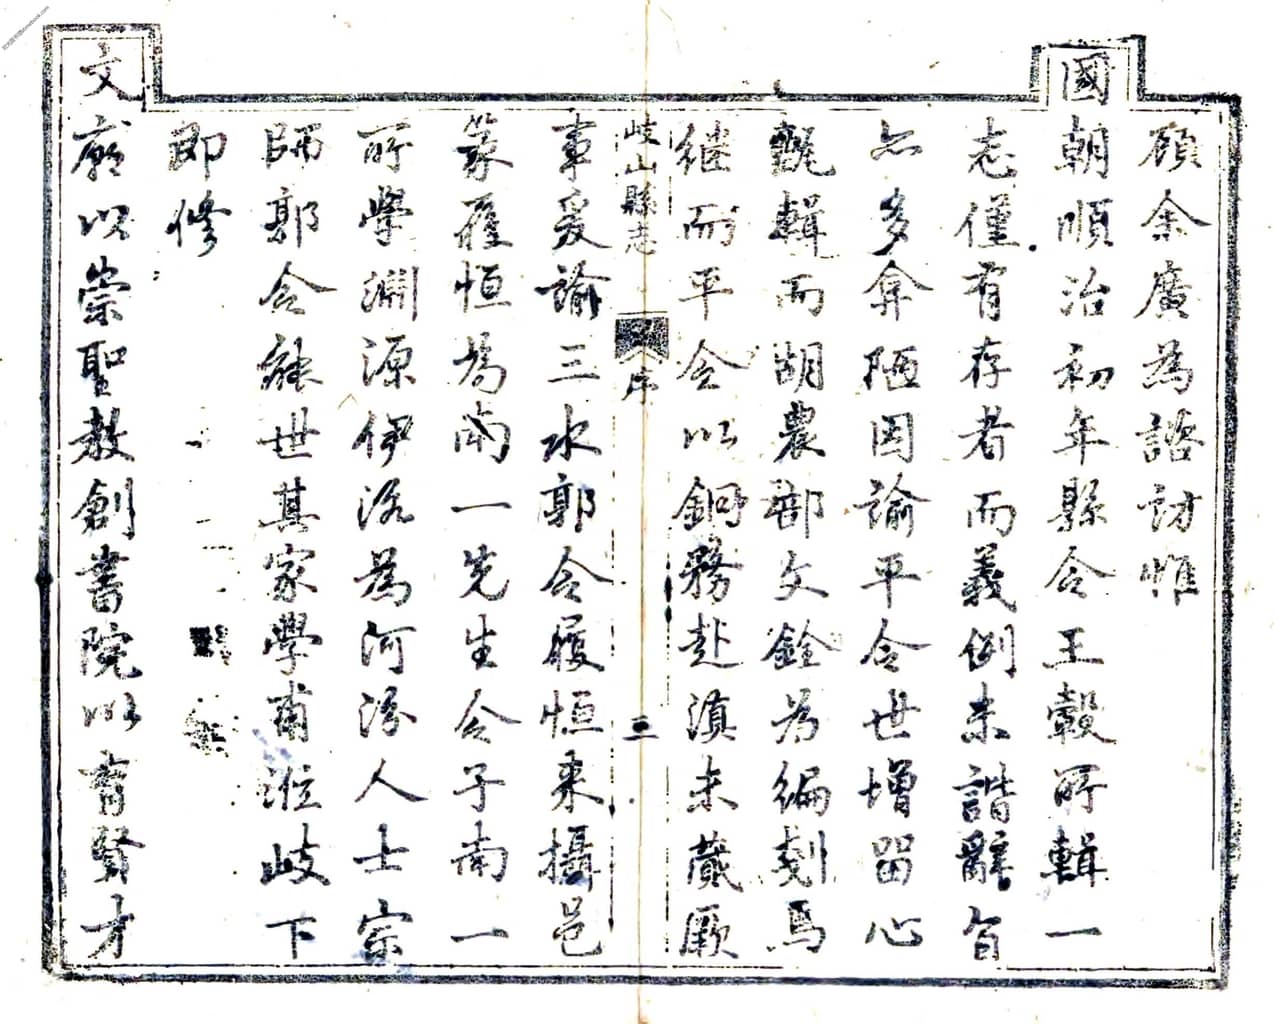 顧余廣為諮訪惟
國朝順治初年縣令王轂所輯一
志僅有存者而義例未諧辭旨
亦多弇陋因諭平令世增留心
甄輯而胡農部文銓為編刻焉
繼而平令以銅務赴滇未蕆厥
岐山縣志
序
三
事爰諭三水郭令履恒來攝邑
篆履恒為南一先生令子南一
所學淵源伊洛為河汾人士宗
師郭令能世其家學甫涖岐下
即修
文廟以崇聖教創書院以育賢才